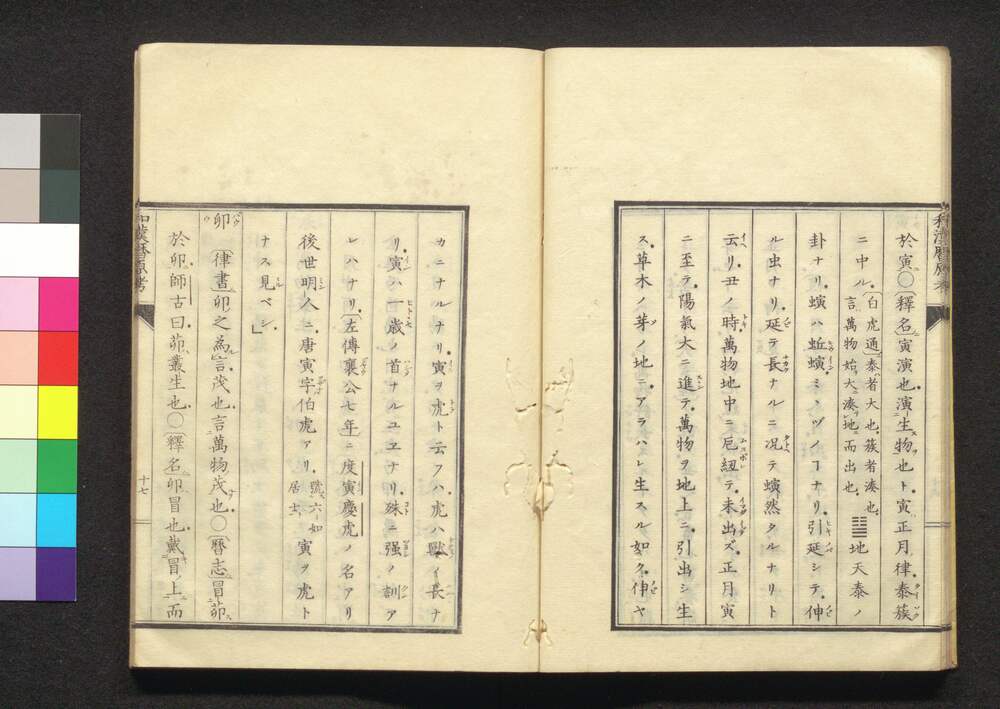 和漢暦原考
於寅○釋名寅演也演生物也ト寅正月律泰蔟
ニ中ル白虎通泰者大也蔟者湊也
言萬物始大湊地而出也 ䷊地天泰ノ
卦ナリ螾ハ蚯螾ミヽヅノコナリ引延シテ伸
ル虫ナリ延テ長ナルニ况テ螾然タルナリト
云リ丑ノ時萬物地中ニ戹紐テ未出ズ正月寅
ニ至テ陽氣大ニ進テ萬物ヲ地上ニ引出シ生
ス草木ノ芽ノ地ニアラハレ生スル如ク伸ヤ
カニナルナリ寅ヲ虎ト云フハ虎ハ獸ノ長ナ
リ寅ハ一歳ノ首ナルユヱナリ殊ニ强ノ訓ア
レハナリ左傳襄公七年ニ度寅慶虎ノ名アリ
後世明人ニ唐寅字伯虎アリ號六如
居士 寅ヲ虎ト
ナス見ベシ」
卯 律書卯之為言茂也言萬物茂也○曆志冒茆
於卯師古曰茆叢生也○釋名卯冒也戴冒上而
和漢暦原考
十七